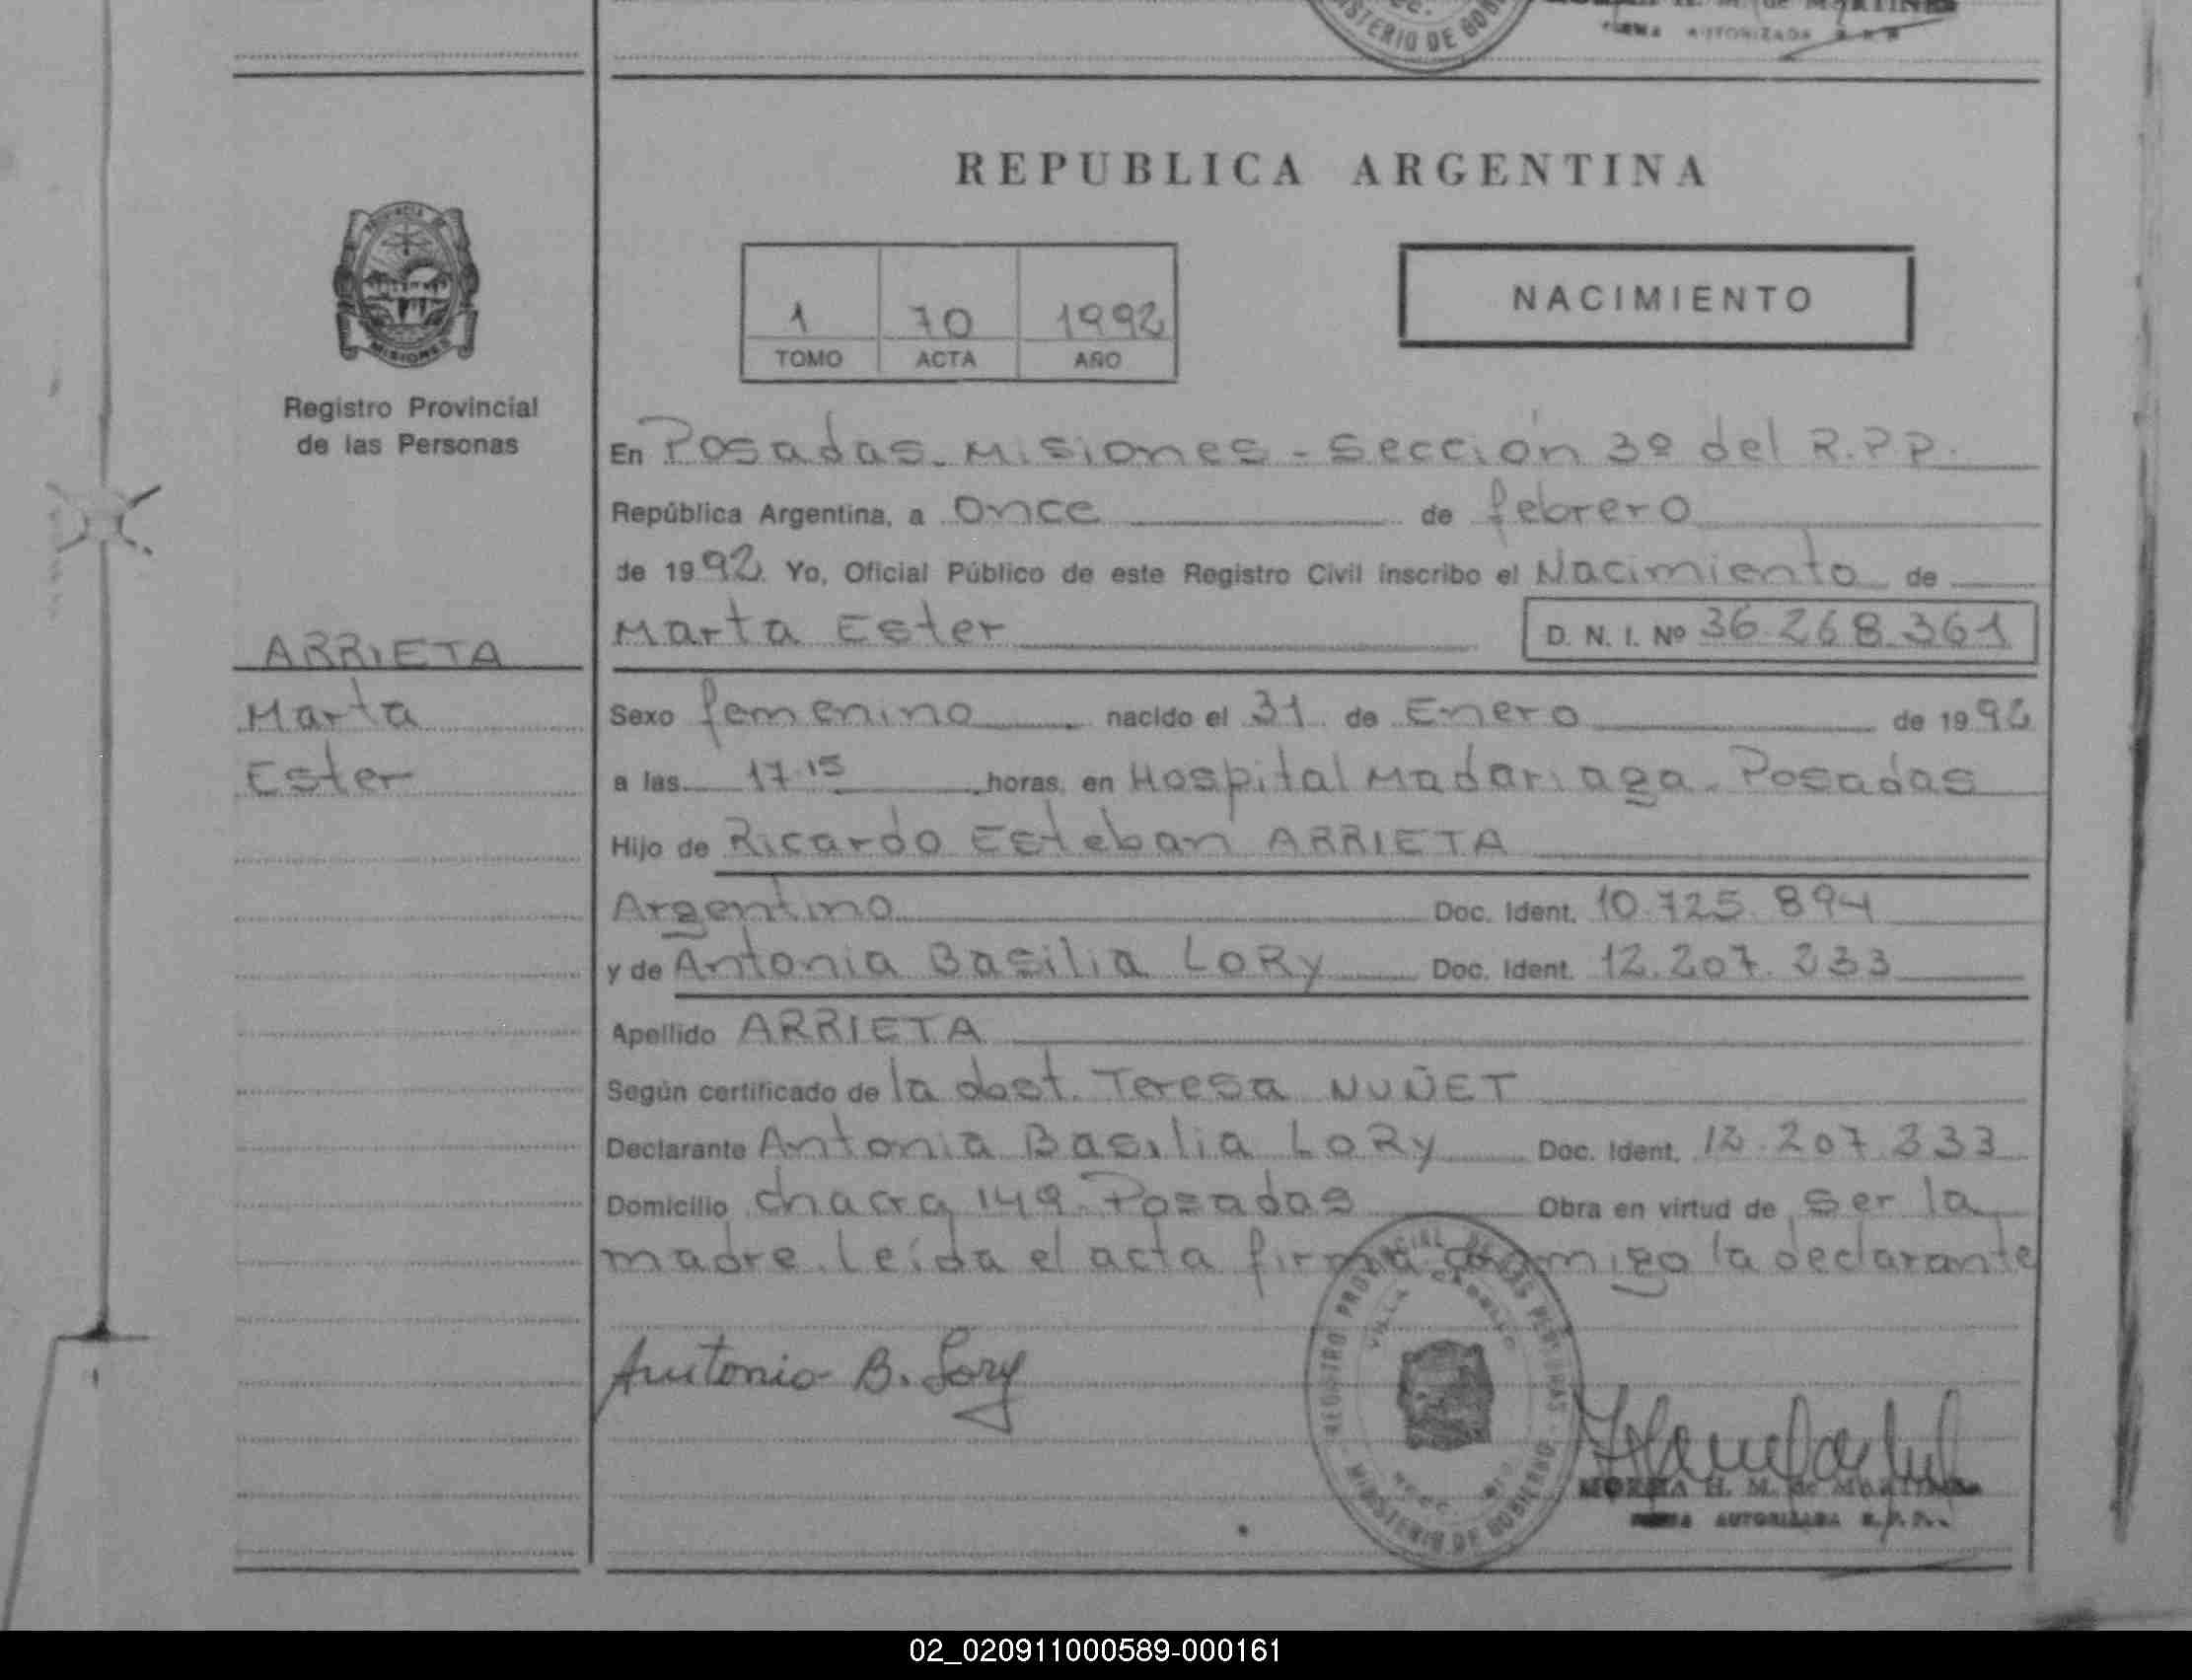 MINISTERIO DE GOB
FIRMA AUTORIZADA
REPUBLICA ARGENTINA
1 70 1992
TOMO ACTA AÑO
NACIMIENTO
PROVINCIA DE
MISIONES
Registro Provincial
de las Personas
ARRIETA
Marta
Ester
En Posadas. Misiones - Sección 3º del R.P.P.
República Argentina, a once de febrero
de 1992. Yo, Oficial Público de este Registro Civil inscribo el Nacimiento de
Marta Ester D. N. I. Nº 36.268.361
Sexo femenino nacido el 31 de Enero de 1992
a las 17.15 horas, en Hospital Madariaga. Posadas
Hijo de Ricardo Esteban ARRIETA
Argentino Doc. Ident. 10.725.894
y de Antonia Basilia LORY Doc. Ident. 12.207.333
Apellido ARRIETA
Según certificado de la obst. Teresa NUÑET
Declarante Antonia Basilia LORY Doc. Ident. 12.207.333
Domicilio chacra 149. Posadas Obra en virtud de ser la
madre. Leída el acta firma conmigo la declarante
Antonia B. Lory
REGISTRO PROVINCIAL DE LAS PERSONAS
MINISTERIO DE GOBIERNO
H. M. de
FIRMA AUTORIZADA R.P.P.
02_020911000589-000161